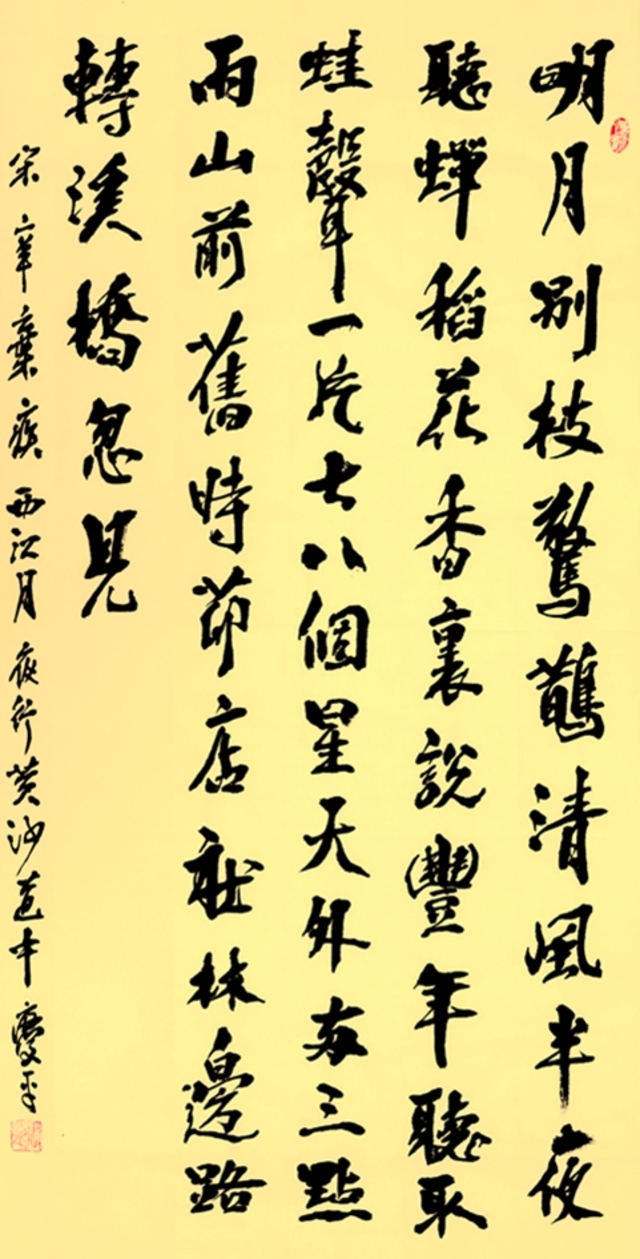 明月別枝驚鵲清風半夜
聽蟬稻花香裏說豐年聽取
蛙聲一片七八個星天外兩三點
雨山前舊時茆店社林邊路
轉溪橋忽見
宋辛棄疾西江月夜行黃沙道中慶平